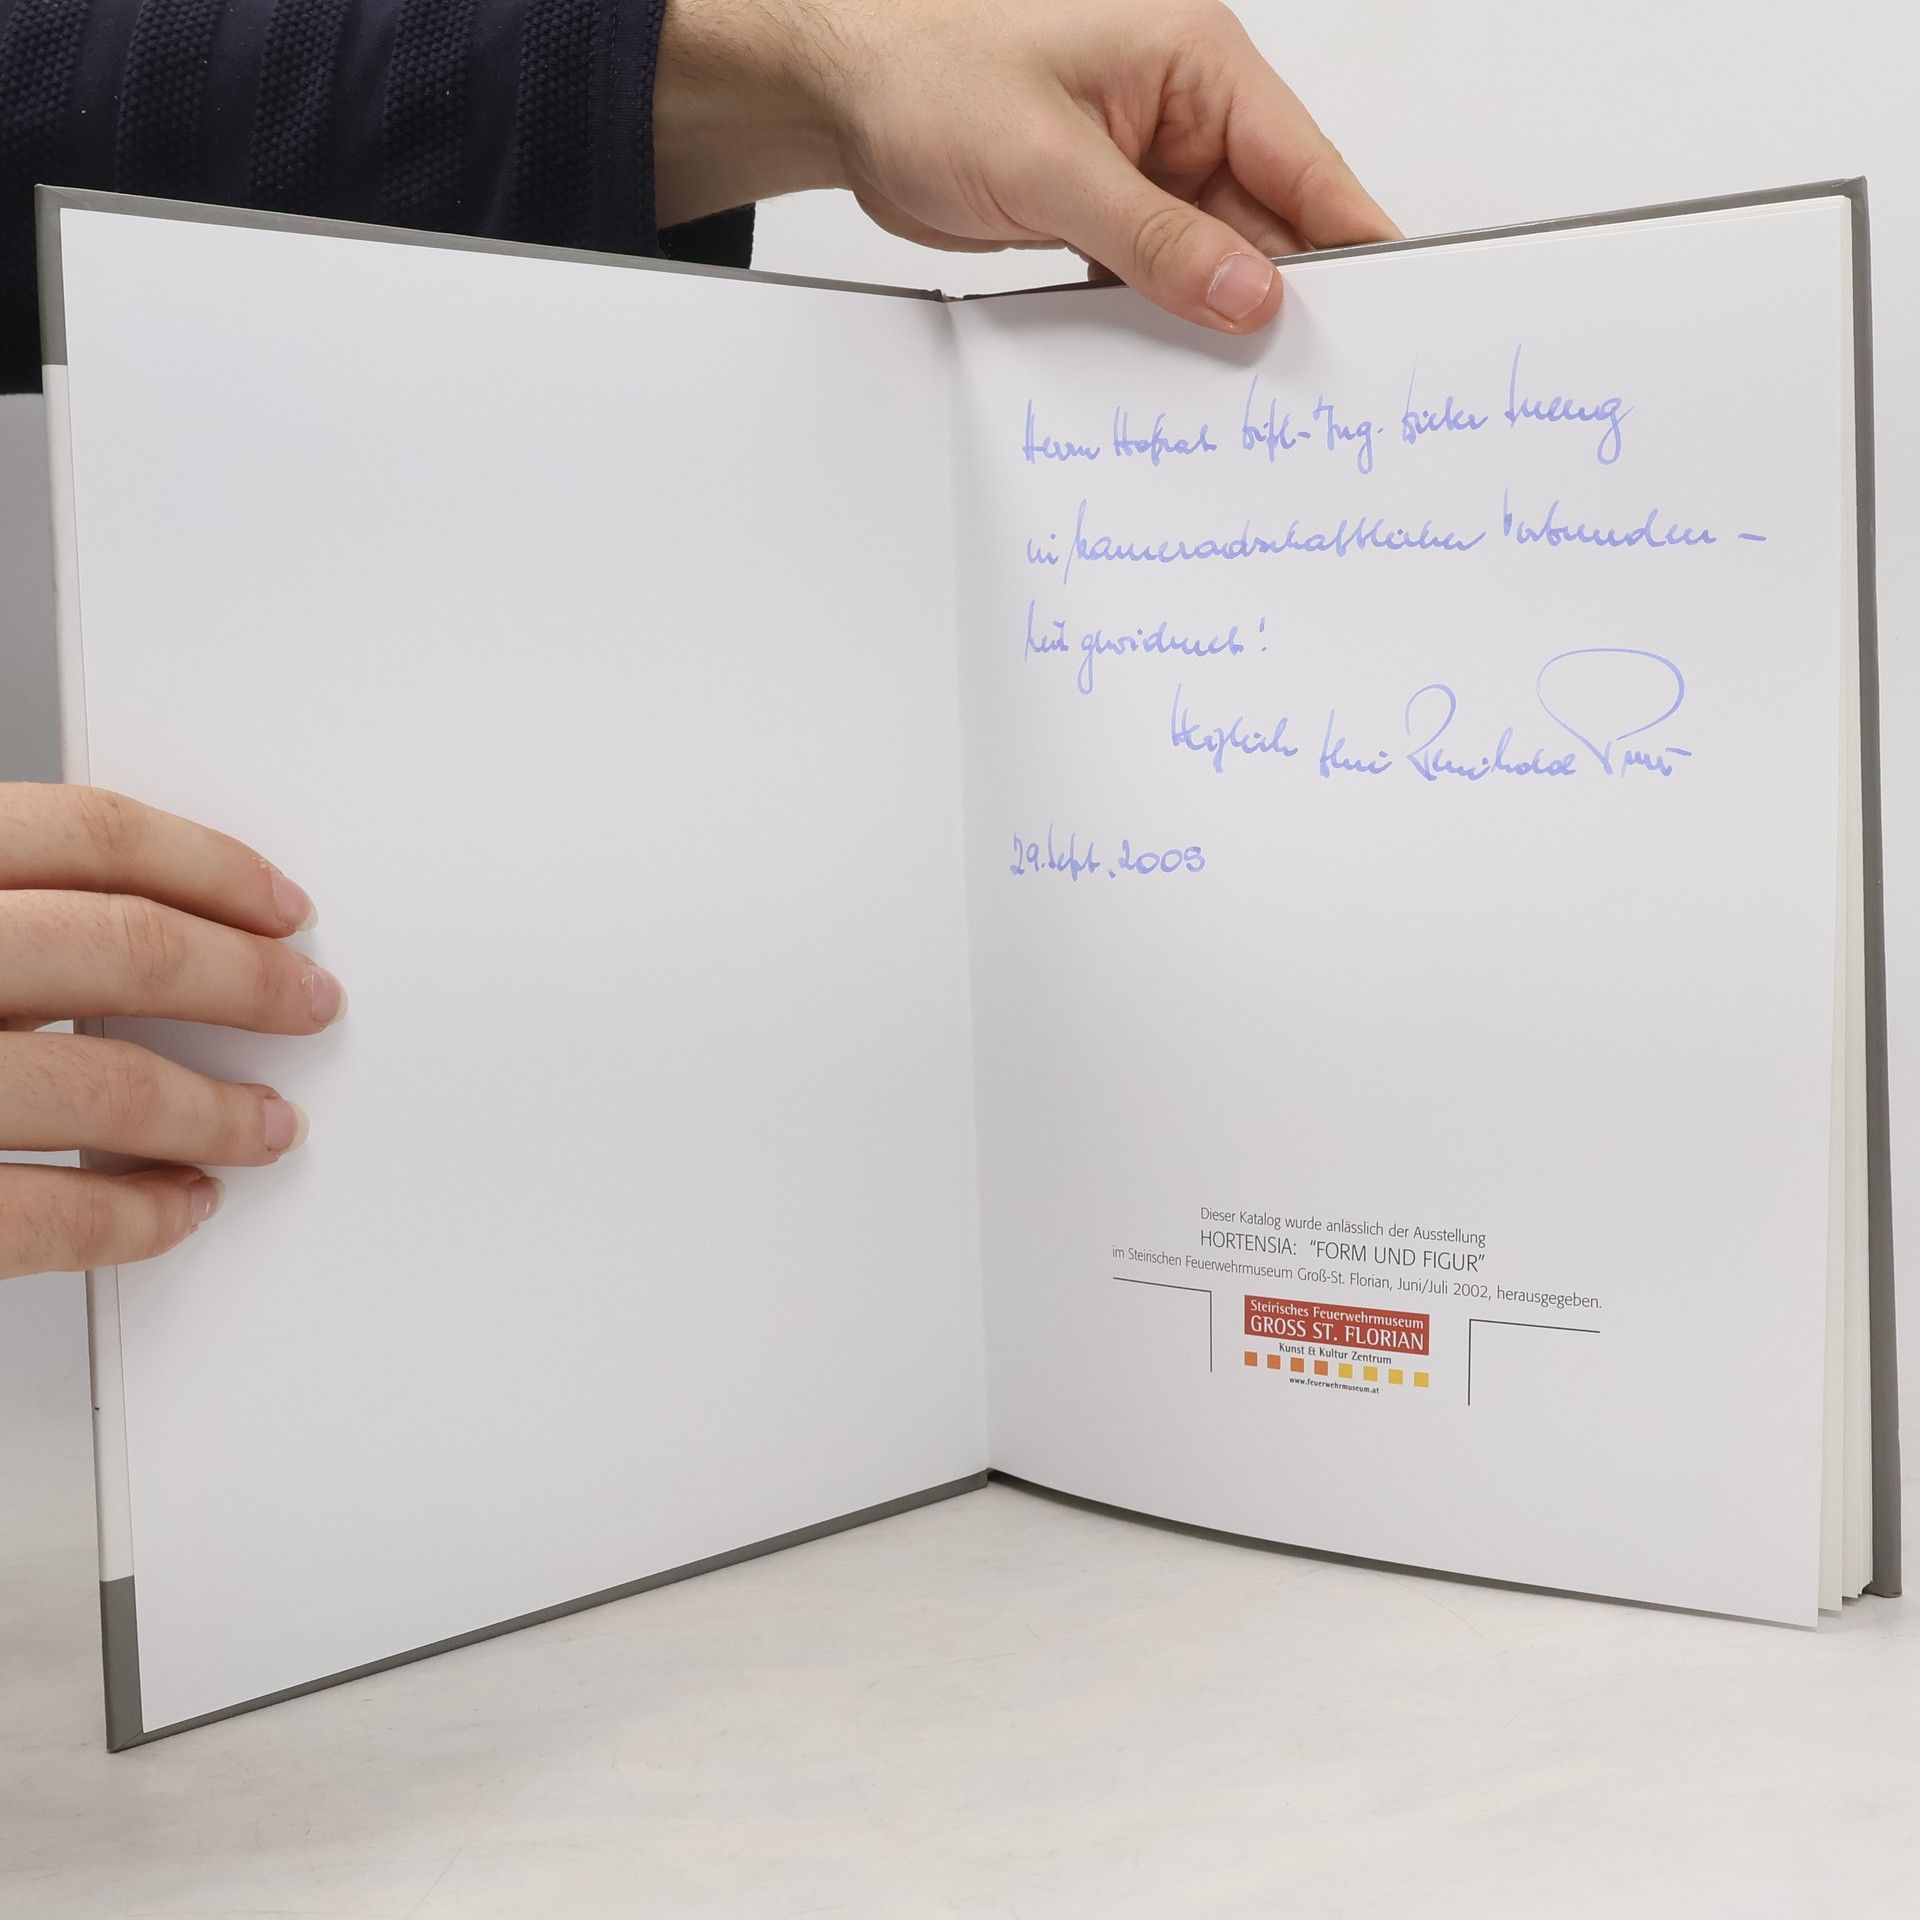 Herrn Hofrat Dipl-Ing. Dieter
in kameradschaftlicher Verbunden-
heit gewidmet!
Herzlich Ihr Reinhold
29. Sept. 2005
Dieser Katalog wurde anlässlich der Ausstellung
HORTENSIA: "FORM UND FIGUR"
im Steirischen Feuerwehrmuseum Groß-St. Florian, Juni/Juli 2002, herausgegeben.
Steirisches Feuerwehrmuseum
GROSS ST. FLORIAN
Kunst & Kultur Zentrum
www.feuerwehrmuseum.at